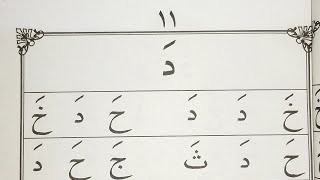 ١١
دَ
خَ دَ دَ حَ دَ خَ
حَ دَ ثَ جَ حَ دَ